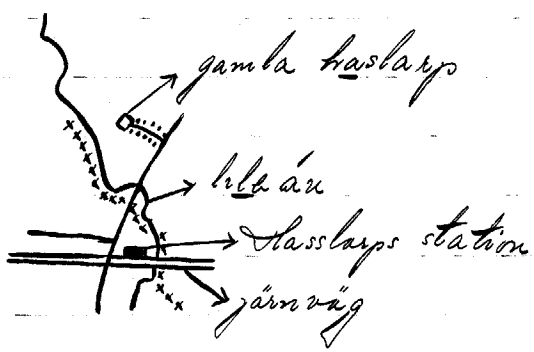 gamla haslarp
lrle ån
Hasslarps station
järnväg